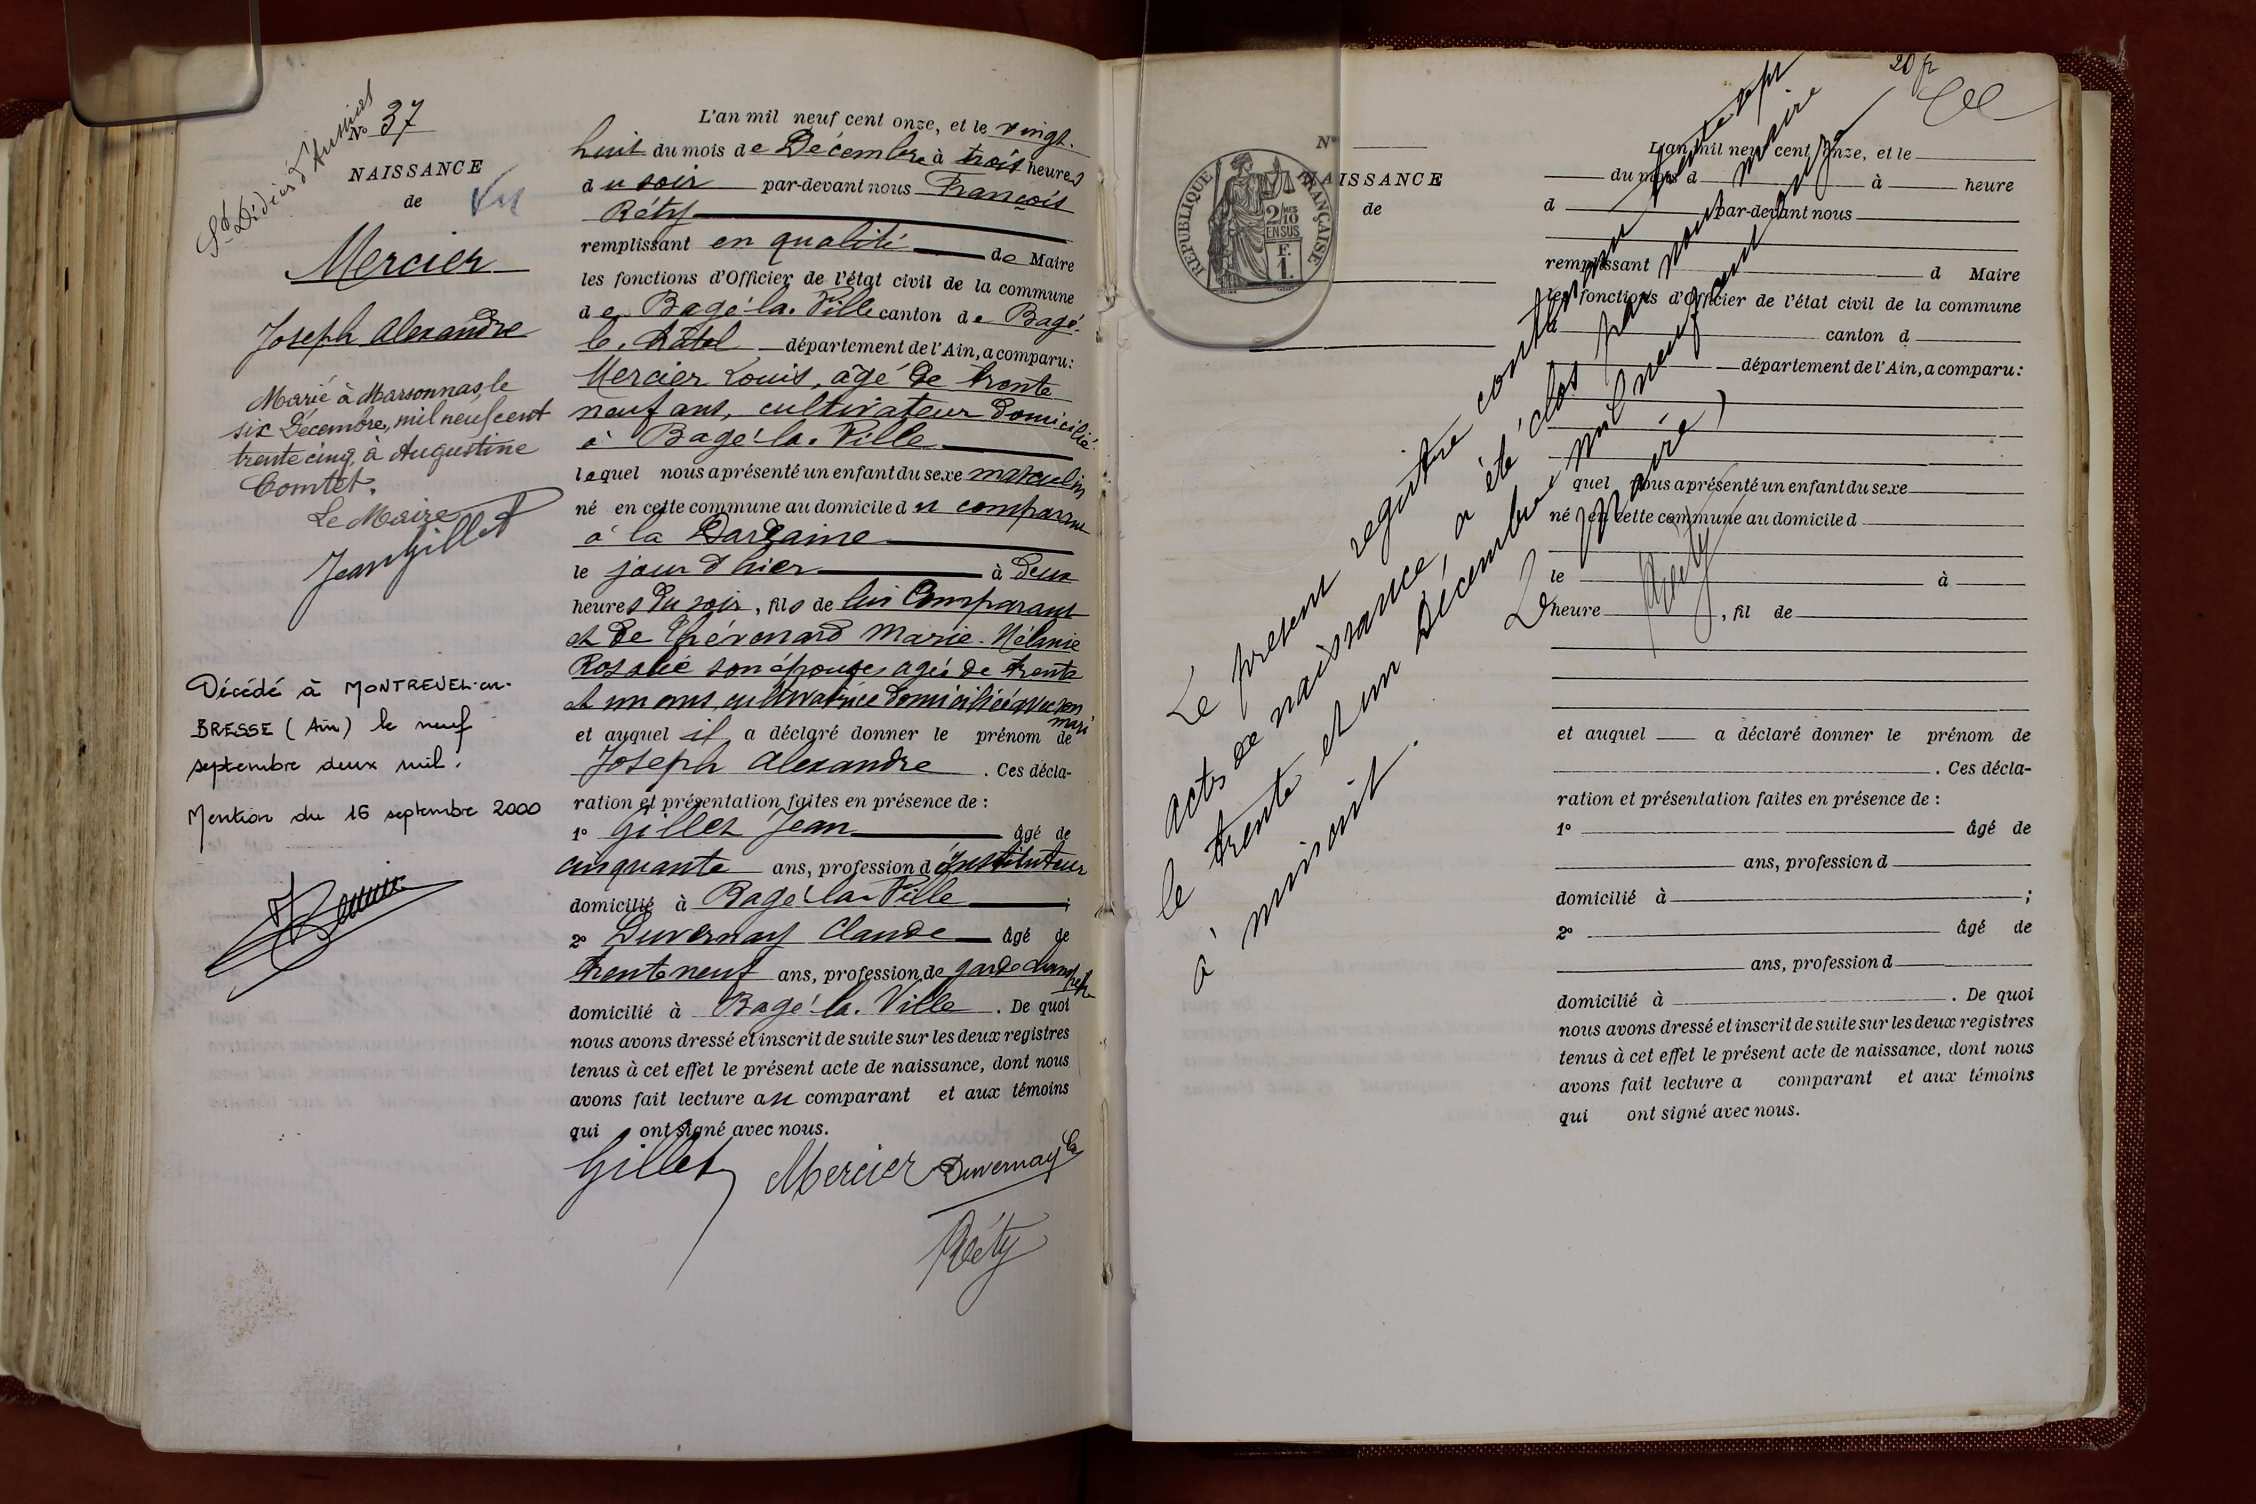 St Didier d'Aussiat
N° 37
NAISSANCE
de
Vu
Mercier
Joseph Alexandre
Marié à Marsonnas, le
six Décembre, mil neuf cent
trente cinq, à Augustine
Comtet.
Le Maire
Jean Gillet
Décédé à MONTREVEL-en-
BRESSE (Ain) le neuf
septembre deux mil.
Mention du 16 septembre 2000
L'an mil neuf cent onze, et le vingt-
huit du mois de Décembre à trois heures
du soir par-devant nous François
Réty
remplissant en qualité de Maire
les fonctions d'Officier de l'état civil de la commune
de Bagé-la-Ville canton de Bagé-
le-Châtel département de l'Ain, a comparu:
Mercier Louis, âgé de trente
neuf ans, cultivateur domicilié
à Bagé-la-Ville
lequel nous a présenté un enfant du sexe masculin
né en cette commune au domicile du comparant
à la
le jour d'hier à deux
heures du soir, fils de lui Comparant
et de Thévenard Marie-Mélanie
Rosalie son épouse, agée de trente
et un ans, cultivatrice domiciliée avec son
mari
et auquel il a déclaré donner le prénom de
Joseph Alexandre. Ces décla-
ration et présentation faites en présence de :
1° Gillet Jean âgé de
cinquante ans, profession d'Instituteur
domicilié à Bagé-la-Ville ;
2° Duvernay Claude âgé de
trente neuf ans, profession de garde champêtre
domicilié à Bagé-la-Ville. De quoi
nous avons dressé et inscrit de suite sur les deux registres
tenus à cet effet le présent acte de naissance, dont nous
avons fait lecture au comparant et aux témoins
qui ont signé avec nous.
Gillet Mercier Duvernay Cde
Réty
20 fr
N°
NAISSANCE
de
RÉPUBLIQUE FRANÇAISE
2/10
EN SUS
F.
1.
L'an mil neuf cent onze, et le
du mois d à heure
d par-devant nous
remplissant d Maire
les fonctions d'Officier de l'état civil de la commune
d canton d
département de l'Ain, a comparu:
quel nous a présenté un enfant du sexe
né en cette commune au domicile d
le à
heure , fil de
et auquel a déclaré donner le prénom de
. Ces décla-
ration et présentation faites en présence de :
1° âgé de
ans, profession d
domicilié à ;
2° âgé de
ans, profession d
domicilié à . De quoi
nous avons dressé et inscrit de suite sur les deux registres
tenus à cet effet le présent acte de naissance, dont nous
avons fait lecture a comparant et aux témoins
qui ont signé avec nous.
Le présent registre contenant trente sept
actes de naissance, a été clos par nous maire
le trente et un Décembre mil neuf cent onze
à minuit.
Le Maire,
Réty